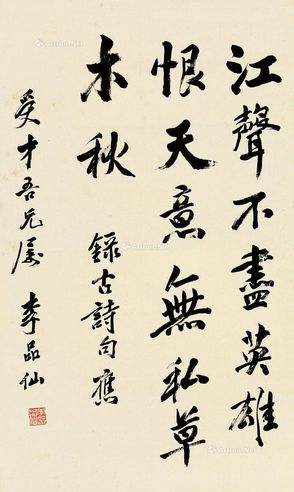 江聲不盡英雄
恨天意無私草
木秋
錄古詩句應
才吾兄属 李品仙